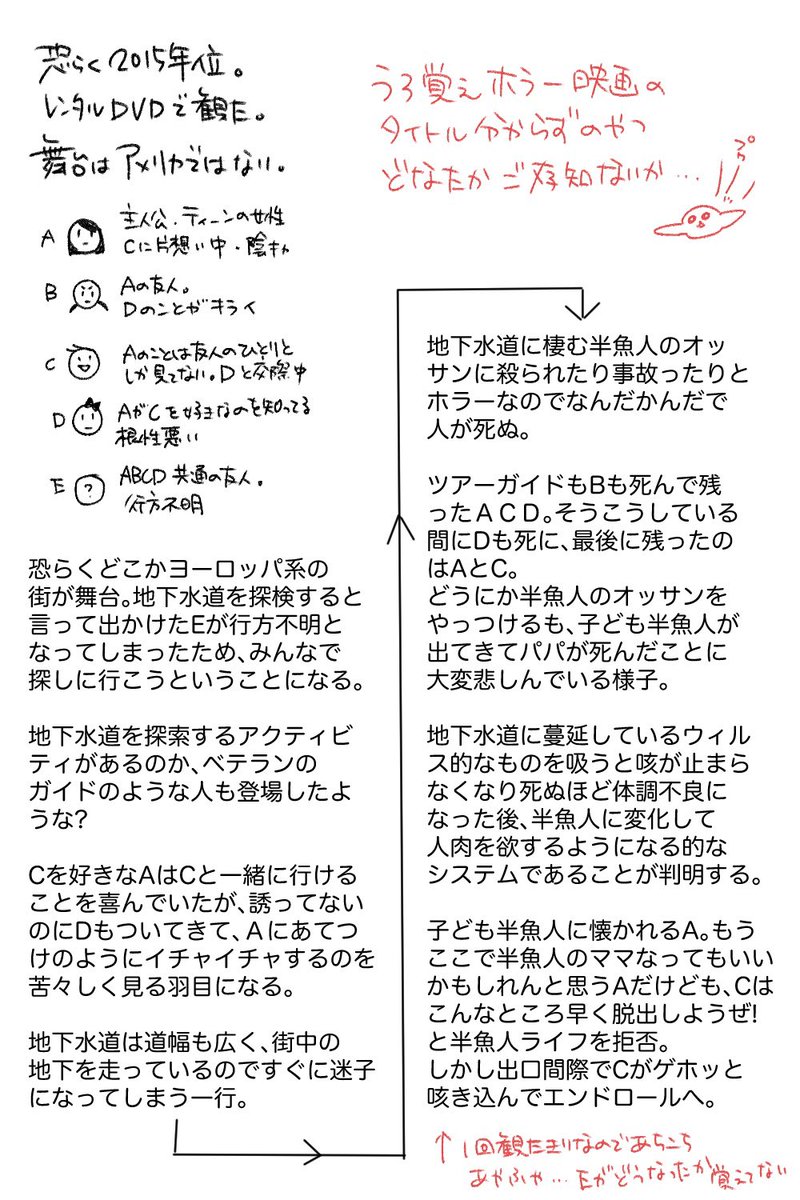 恐らく2015年位。
レンタルDVDで観た。
舞台はアメリカではない。
うろ覚えホラー映画の
タイトル分からずのやつ
どなたかご存知ないか…
ぷら
A
主人公.ティーンの女性
Cに片想い中・陰キャ
B
Aの友人。
Dのことがキライ
C
Aのことは友人のひとりと
しか見てない。Dと交際中
D
AがCを好きなのを知ってる
根性悪い
E
?
ABCD共通の友人。
行方不明
恐らくどこかヨーロッパ系の
街が舞台。地下水道を探検すると
言って出かけたEが行方不明と
なってしまったため、みんなで
探しに行こうということになる。
地下水道を探索するアクティビ
ティがあるのか、ベテランの
ガイドのような人も登場したよ
うな?
Cを好きなAはCと一緒に行ける
ことを喜んでいたが、誘ってない
のにDもついてきて、Aにあてつ
けのようにイチャイチャするのを
苦々しく見る羽目になる。
地下水道は道幅も広く、街中の
地下を走っているのですぐに迷子
になってしまう一行。
地下水道に棲む半魚人のオッ
サンに殺られたり事故ったりと
ホラーなのでなんだかんだで
人が死ぬ。
ツアーガイドもBも死んで残
ったACD。そうこうしている
間にDも死に、最後に残ったの
はAとC。
どうにか半魚人のオッサンを
やっつけるも、子ども半魚人が
出てきてパパが死んだことに
大変悲しんでいる様子。
地下水道に蔓延しているウィル
ス的なものを吸うと咳が止まら
なくなり死ぬほど体調不良に
なった後、半魚人に変化して
人肉を欲するようになる的な
システムであることが判明する。
子ども半魚人に懐かれるA。もう
ここで半魚人のママなってもいい
かもしれんと思うAだけども、Cは
こんなところ早く脱出しようぜ!
と半魚人ライフを拒否。
しかし出口間際でCがゲホッと
咳き込んでエンドロールへ。
↑1回観たきりなのであちこち
あやふや…Eがどうなったか覚えてない